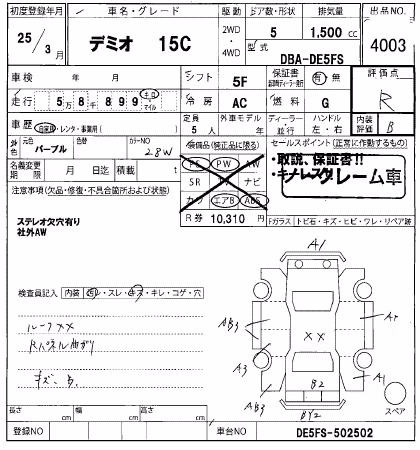 初度登録年月 車名・グレード 駆動 ドア数・形状 排気量 出品NO.
25/3月 デミオ 15C 2WD・4WD 5 1,500 cc 4003
型式 DBA-DE5FS
車検 年 月 シフト 5F 保証書 有・無 評価点
R
走行 5万8千899 km・マイル 冷房 AC 燃料 G 内装評価 B
車歴 自家用・レンタ・事業用( ) 定員 5人 外車モデル 年 ディーラー・並行 ハンドル 左・右
外色 元色 パープル カラーNO 28W
装備品(純正品に限る) セールスポイント(正常に作動するもの)
名義変更期限 月 日迄 積載 t
PS PW AW
SR ナビ
カワ エアB ABS
・取説、保証書!!
・キノレスク!
クレーム車
R券 10,310 円
注意事項(欠品・修復・不具合箇所および状態)
Fガラス トビ石・キズ・ヒビ・ワレ・リペア跡
ステレオ欠穴有り
社外AW
検査員記入 内装 汚れ・スレ・キズ・キレ・コゲ・穴
ルーフXX
Rパネル曲がり
キズ、B.
A1
AB3
A3
AB3
XX
B2
BY2
A1
スペア
長さ cm 幅 cm 高さ cm
登録NO 車台NO DE5FS-502502